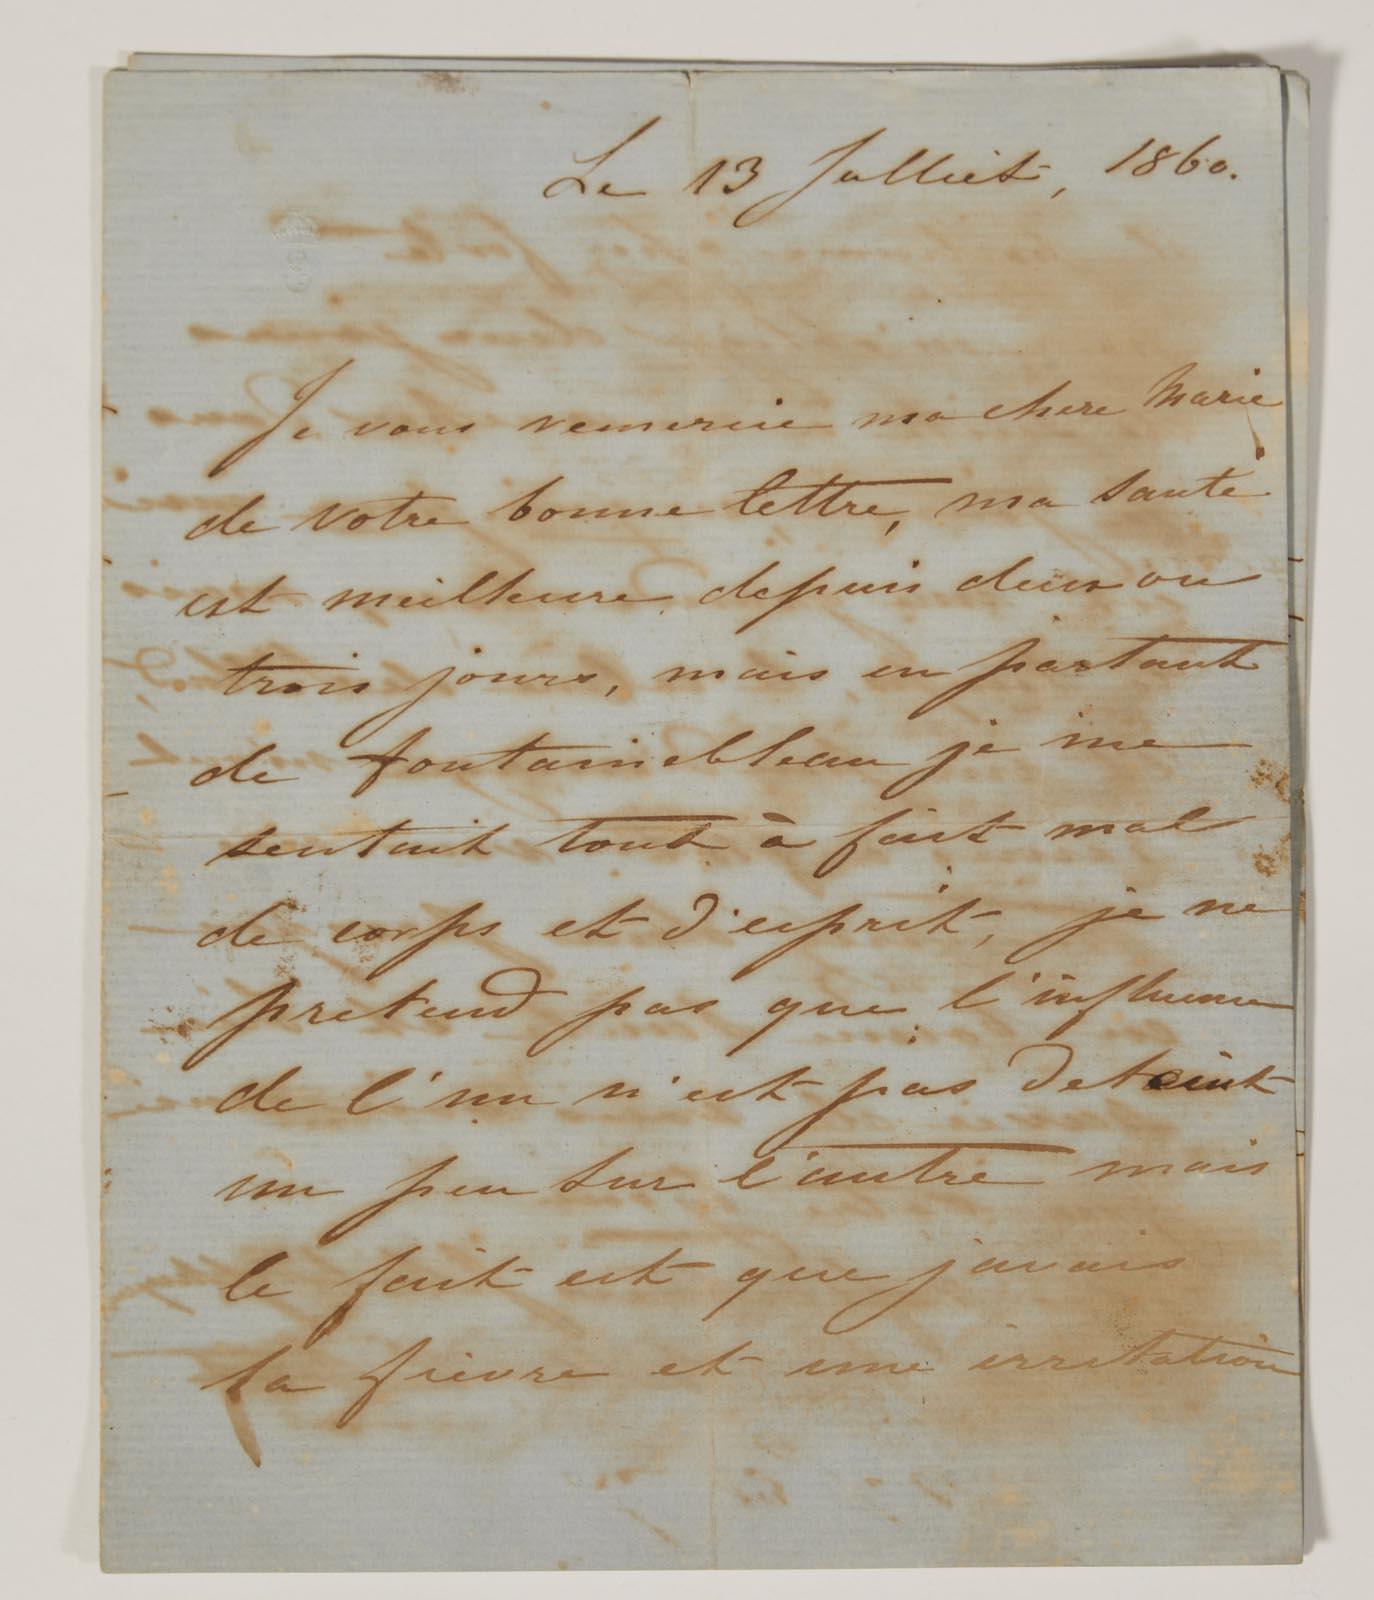 Le 13 Julliet, 1860.
Je vous remercie ma chere Marie
de votre bonne lettre, ma santé
est meilleure depuis deux ou
trois jours, mais en partant
de Fontainebleau je me
sentait tout à fait mal
de corps et d'esprit, je ne
pretend pas que l'influence
de l'un n'est pas deteint
un peu sur l'autre mais
le fait est que javais
la fievre et une irritation